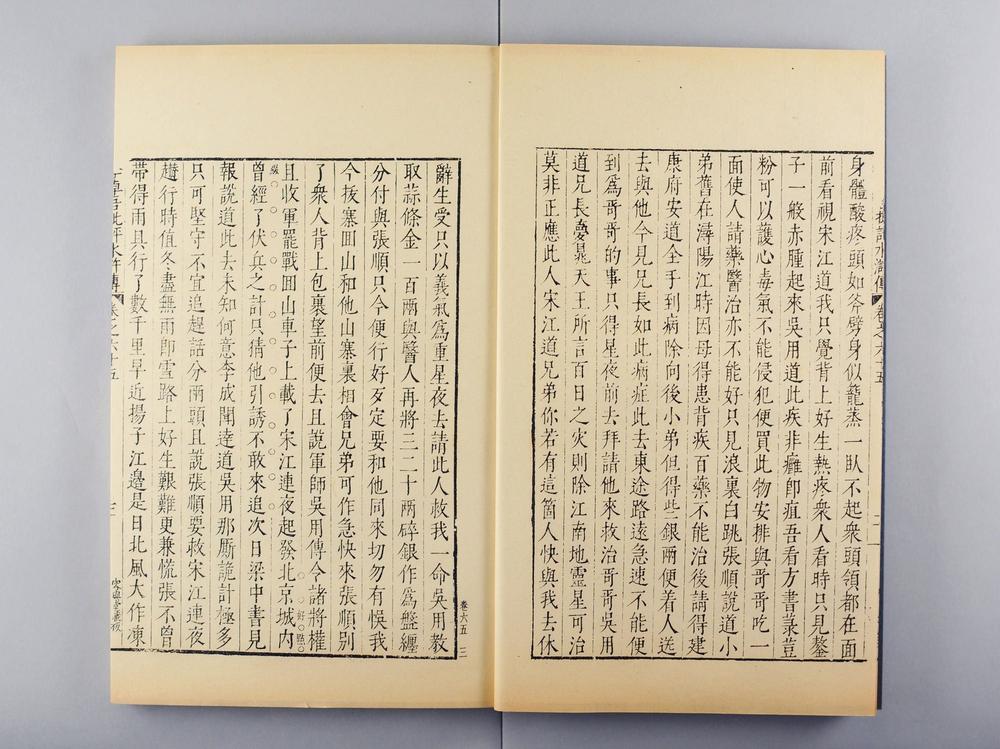 身體酸疼頭如斧劈身似籠蒸一臥不起衆頭領都在面
前看視宋江道我只覺背上好生熱疼衆人看時只見鏊
子一般赤腫起來吳用道此疾非癰卽疽吾看方書菉荳
粉可以護心毒氣不能侵犯便買此物安排與哥哥吃一
面使人請藥醫治亦不能好只見浪裏白跳張順說道小
弟舊在潯陽江時因母得患背疾百藥不能治後請得建
康府安道全手到病除向後小弟但得些銀兩便着人送
去與他今見兄長如此病症此去東途路遠急速不能便
到爲哥哥的事只得星夜前去拜請他來救治哥哥吳用
道兄長夢晁天王所言百日之灾則除江南地靈星可治
莫非正應此人宋江道兄弟你若有這箇人快與我去休
卷六五 三
辭生受只以義氣爲重星夜去請此人救我一命吳用教
取蒜條金一百兩與醫人再將三二十兩碎銀作爲盤纏
分付與張順只今便行好歹定要和他同來切勿有悞我
今拔寨囬山和他山寨裏相會兄弟可作急快來張順別
了衆人背上包裹望前便去且說軍師吳用傳令諸將權
好點
且收軍罷戰囬山車子上載了宋江連夜起發北京城内
曾經了伏兵之計只猜他引誘不敢來追次日梁中書見
報說道此去未知何意李成聞達道吳用那厮詭計極多
只可堅守不宜追趕話分兩頭且說張順要救宋江連夜
趲行時值冬盡無雨卽雪路上好生艱難更兼慌張不曾
帶得雨具行了數千里早近揚子江邊是日北風大作凍
水滸傳 卷之六十五